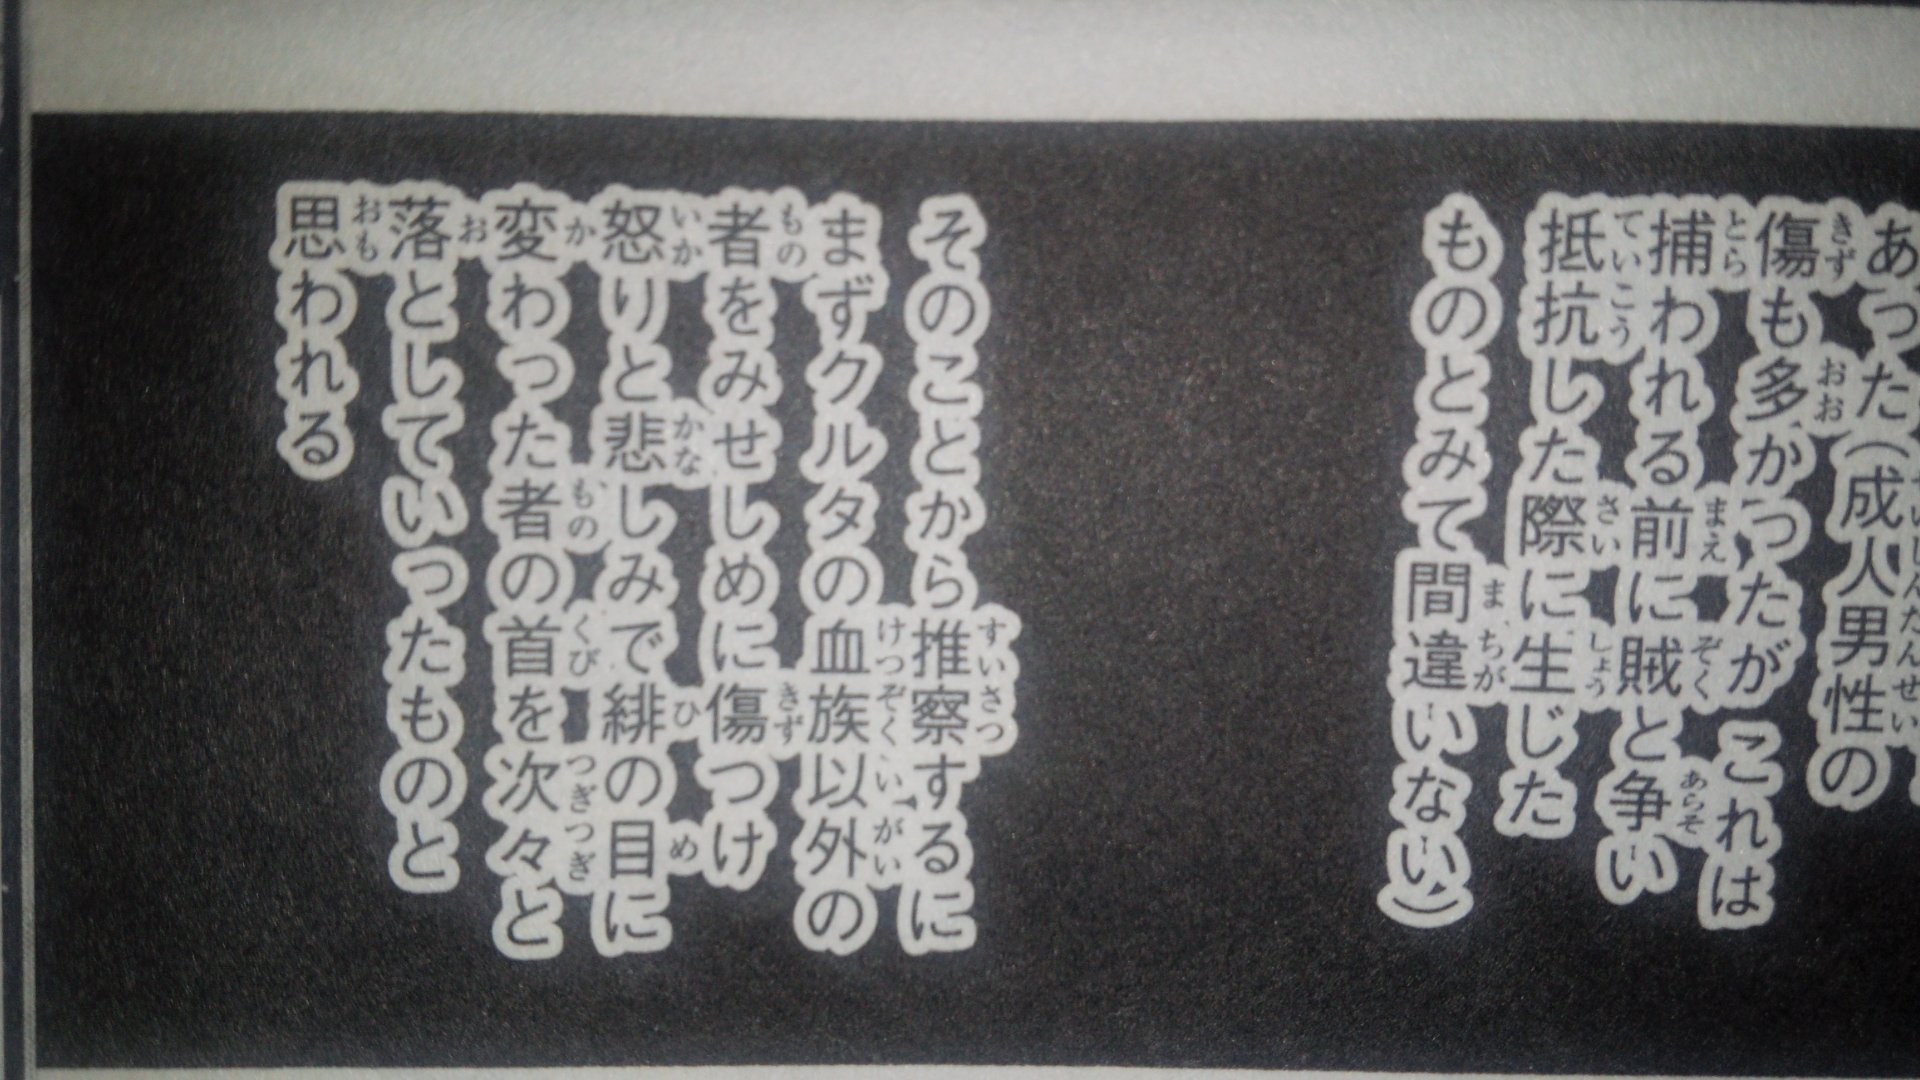 あった（成人男性の
傷も多かったが これは
捕われる前に賊と争い
抵抗した際に生じた
ものとみて間違いない）
そのことから推察するに
まずクルタの血族以外の
者をみせしめに傷つけ
怒りと悲しみで緋の目に
変わった者の首を次々と
落としていったものと
思われる